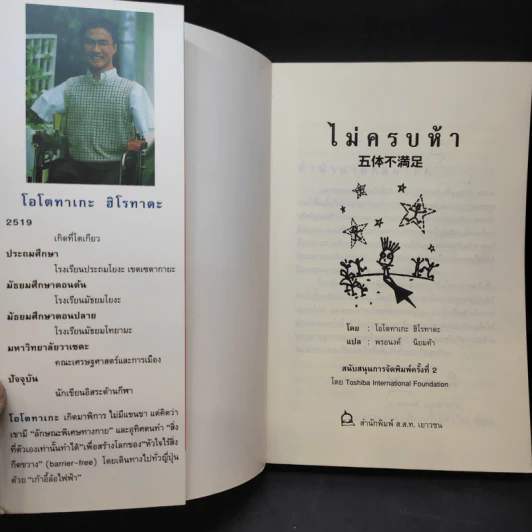 โอโตทาเกะ ฮิโรทาดะ
2519
เกิดที่โตเกียว
ประถมศึกษา
โรงเรียนประถมโยงะ เขตเซตากายะ
มัธยมศึกษาตอนต้น
โรงเรียนมัธยมโยงะ
มัธยมศึกษาตอนปลาย
โรงเรียนมัธยมโทยามะ
มหาวิทยาลัยวาเซดะ
คณะเศรษฐศาสตร์และการเมือง
ปัจจุบัน
นักเขียนอิสระด้านกีฬา
โอโตทาเกะ เกิดมาพิการ ไม่มีแขนขา แต่คิดว่า
เขามี "ลักษณะพิเศษทางกาย" และอุทิศตนทำ "สิ่ง
ที่ตัวเองเท่านั้นทำได้" เพื่อสร้างโลกของ "หัวใจไร้สิ่ง
กีดขวาง" (barrier-free) โดยเดินทางไปทั่วญี่ปุ่น
ด้วย "เก้าอี้ล้อไฟฟ้า"
ไม่ครบห้า
五体不満足
โดย : โอโตทาเกะ ฮิโรทาดะ
แปล : พรอนงค์ นิยมค้า
สนับสนุนการจัดพิมพ์ครั้งที่ 2
โดย Toshiba International Foundation
สำนักพิมพ์ ส.ส.ท. เยาวชน